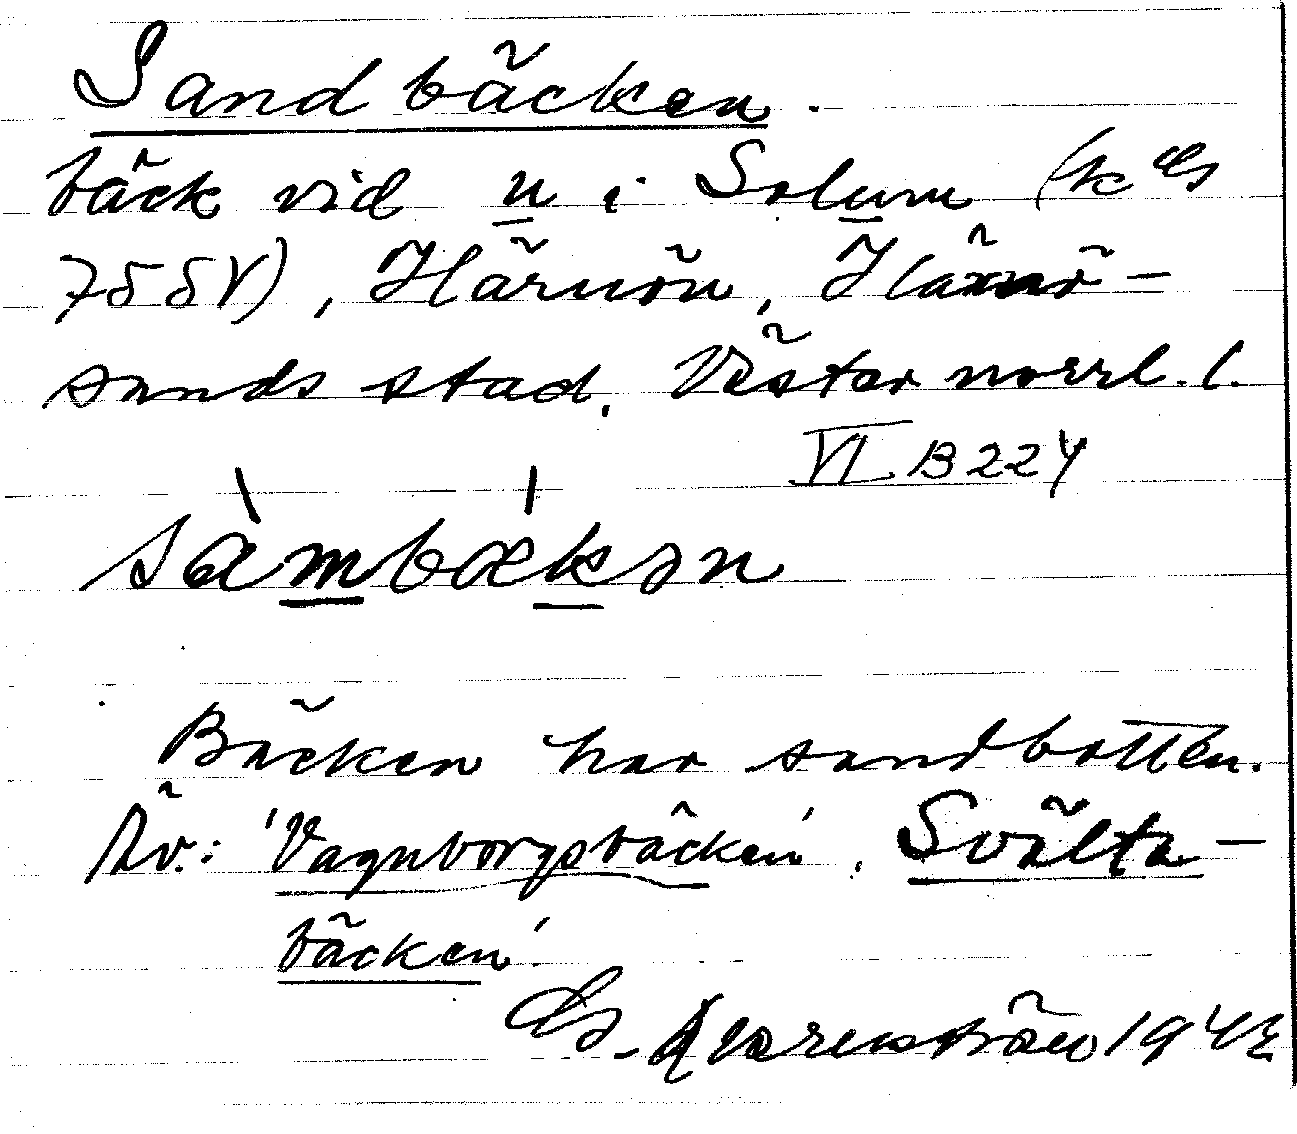 Sandbäcken.
bäck vid n i Solum (k
755V), Härnön, Härnö-
sands stad. Västernorrl. l.
VI B 224
sàmbækən
Bäcken har sandbotten.
Äv.: 'Vagnborgsbäcken'. Svälta-
bäcken'